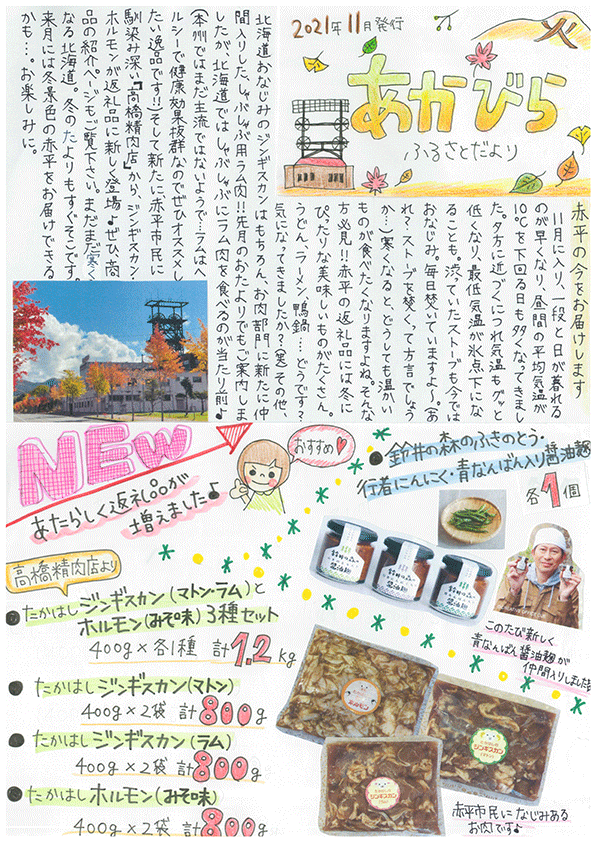 2021年11月発行
あかびら
ふるさとだより
赤平の今をお届けします
11月に入り、一段と日が暮れる
のが早くなり、昼間の平均気温が
10℃を下回る日も多くなってきまし
た。夕方に近づくにつれ気温もグッと
低くなり、最低気温が氷点下にな
ることも。渋ていたストーブも今では
おなじみ。毎日焚いていますよ〜。(あ
れ?ストーブを焚くって方言でしょう
か…)寒くなると、どうしても温かい
ものが食べたくなりますよね。そんな
方必見!!赤平の返礼品には冬に
ぴったりな美味しいものがたくさん。
うどん、ラーメン、鴨鍋…どうです?
気になってきましたか?(笑)その他、
北海道おなじみのジンギスカンはもちろん、お肉部門に新たに仲
間入りした、しゃぶしゃぶ用ラム肉!!先月のおたよりでもご案内しま
したが、北海道ではしゃぶしゃぶにラム肉を食べるのが当たり前♪
(本州ではまだ主流ではないようで…)ラムはヘ
ルシーで健康効果抜群なのでぜひオススメし
たい逸品です!!そして新たに赤平市民に
馴染み深い『高橋精肉店』から、ジンギスカン・
ホルモンが返礼品に新しく登場♪ぜひ、商
品の紹介ページもご覧下さい。まだまだ寒く
なる北海道。冬のたよりもすぐそこです。
来月には冬景色の赤平をお届けできる
かも…。お楽しみに。
NEW
あたらしく返礼品が
増えました♪
おすすめ♥
●鈴井の森のふきのとう・
行者にんにく・青なんばん入り醤油麹
各1個
このたび新しく
青なんばん醤油麹が
仲間入りしました
高橋精肉店より
●たかはしジンギスカン(マトン・ラム)と
ホルモン(みそ味)3種セット
400g×各1種 計1.2kg
●たかはしジンギスカン(マトン)
400g×2袋 計800g
●たかはしジンギスカン(ラム)
400g×2袋 計800g
●たかはしホルモン(みそ味)
400g×2袋 計800g
赤平市民になじみある
お肉です♪